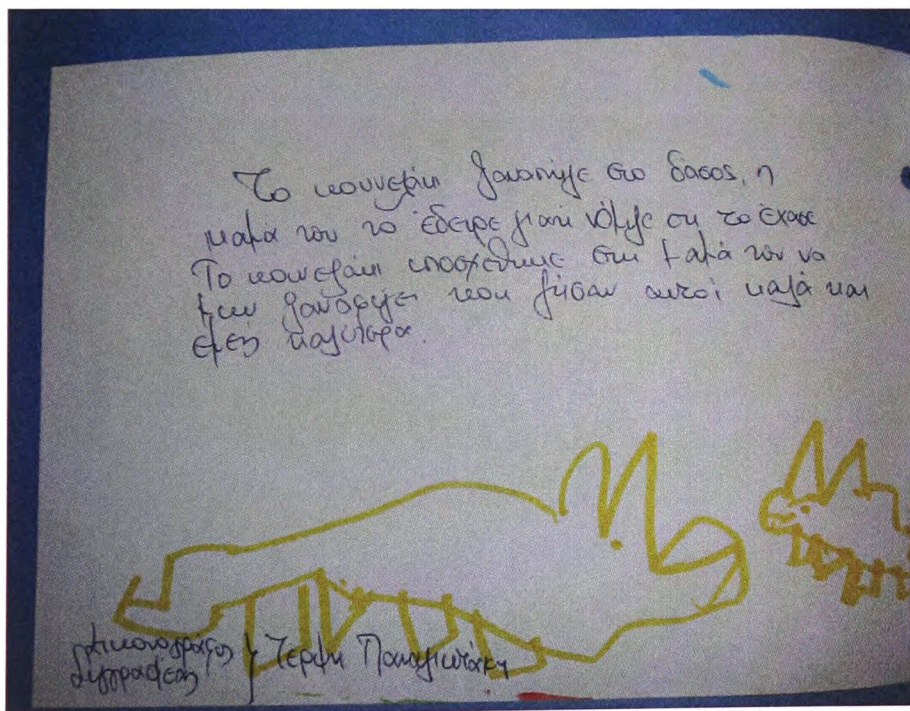 Το κουνελάκι ξαναπήγε στο δάσος, η
μαμά του το έδειρε γιατί νόμιζε οτι το έχασε
Το κουνελάκι υποσχέθηκε στη μαμά του να
μην ξαναφύγει και ζήσαν αυτοί καλά και
εμείς καλύτερα.
εικονογράφος
συγγραφέας } Τέρψη Παναγιωτάκη